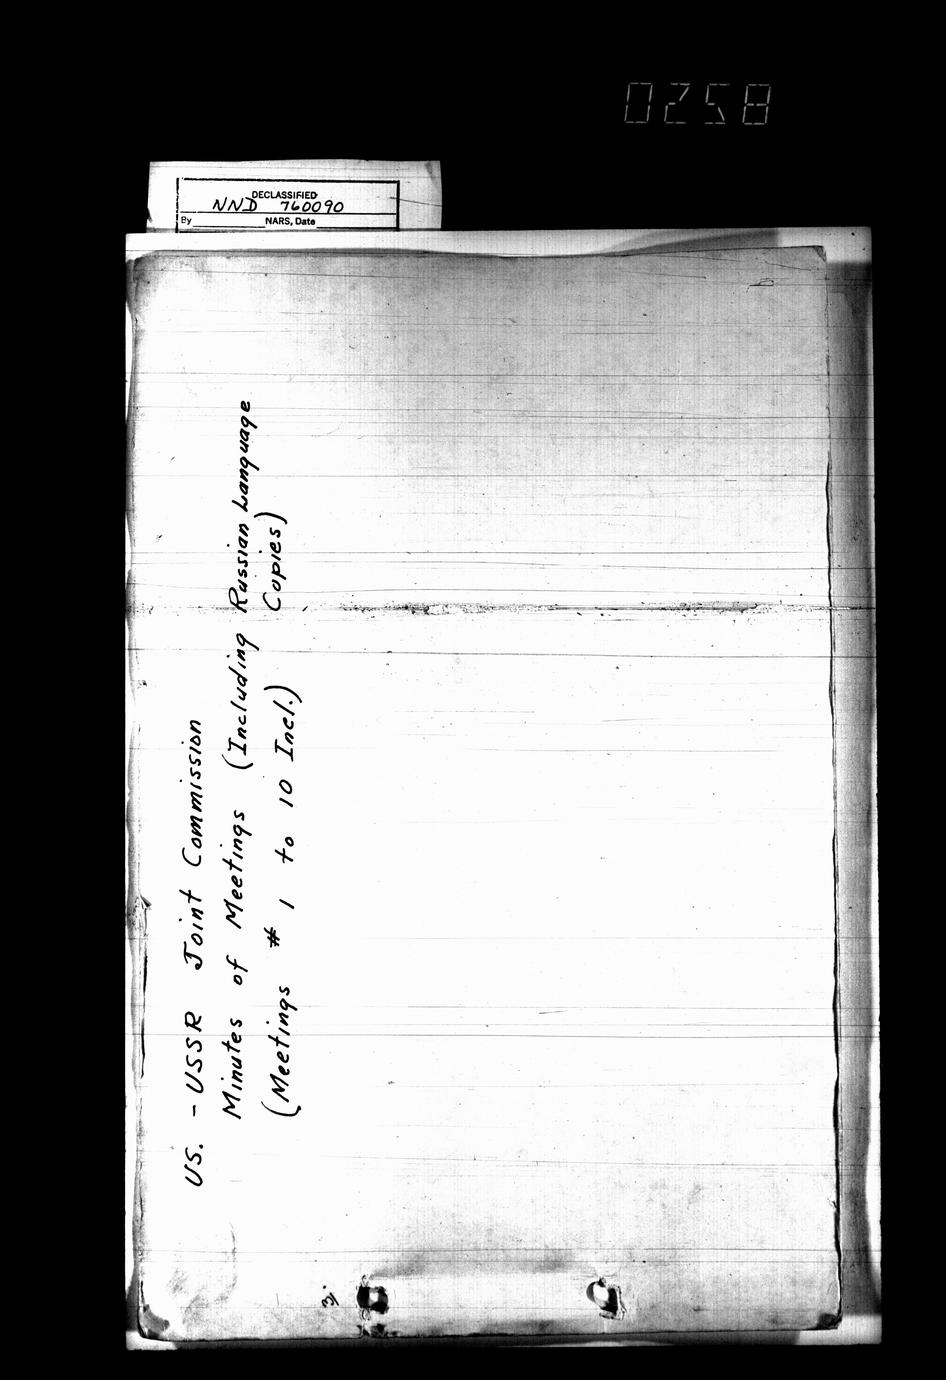 0258
DECLASSIFIED
NND 760090
By NARS, Date
US. - USSR Joint Commission
Minutes of Meetings (Including Russian Language
Copies)
(Meetings # 1 to 10 Incl.)